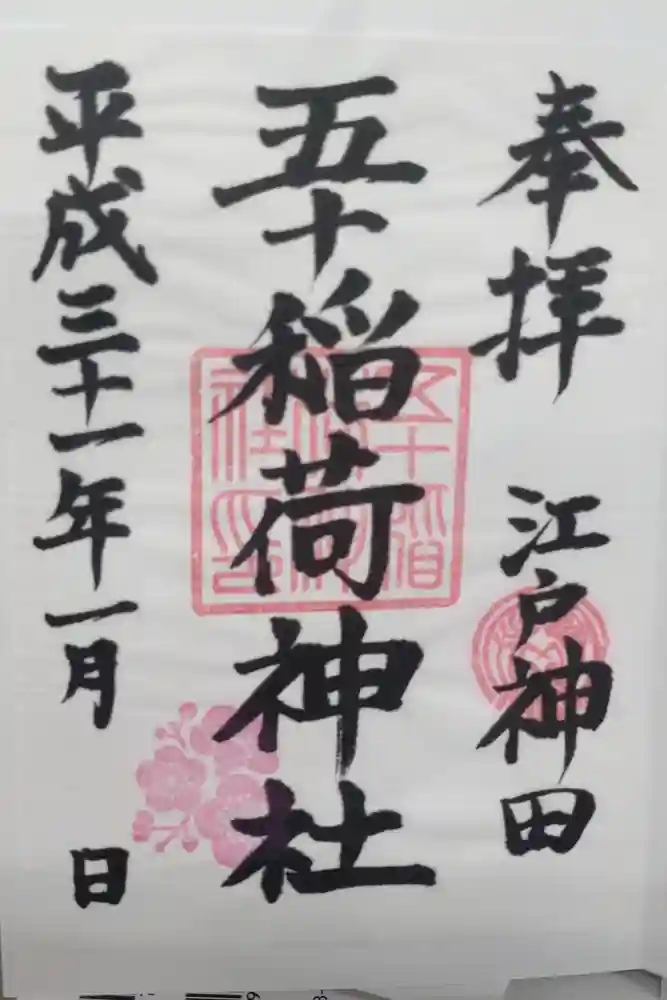 奉拝 江戸神田
五十稲荷神社
平成三十一年一月 日